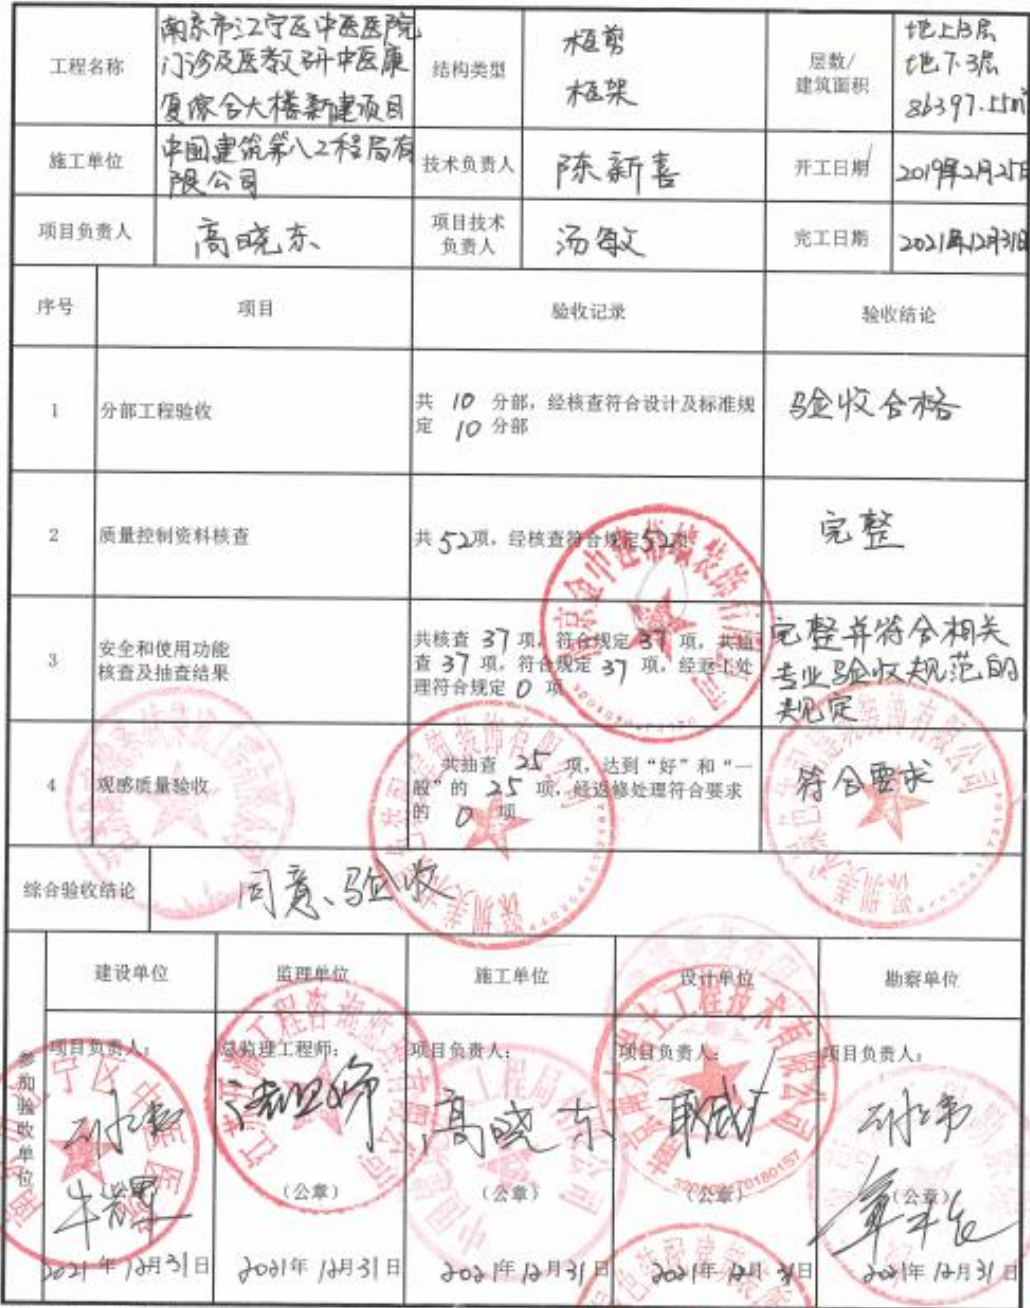 工程名称
南京市江宁区中医医院
门诊及医教研中医康
复综合大楼新建项目
结构类型
框剪
框架
层数/
建筑面积
地上13层
地下3层
86397.55㎡
施工单位
中国建筑第八工程局有
限公司
技术负责人
陈新喜
开工日期
2019年2月25日
项目负责人
高晓东
项目技术
负责人
汤敏
完工日期
2021年12月31日
序号
项目
验收记录
验收结论
1
分部工程验收
共 10 分部，经核查符合设计及标准规
定 10 分部
验收合格
2
质量控制资料核查
共 52项，经核查符合规定52项
完整
3
安全和使用功能
核查及抽查结果
共核查 37 项，符合规定 37 项，共抽
查 37 项，符合规定 37 项，经返工处
理符合规定 0 项
完整并符合相关
专业验收规范的
规定
4
观感质量验收
共抽查 25 项，达到“好”和“一
般”的 25 项，经返修处理符合要求
的 0 项
符合要求
综合验收结论
同意验收
参加验收单位
建设单位
监理单位
施工单位
设计单位
勘察单位
项目负责人：
总监理工程师：
项目负责人：
项目负责人：
项目负责人：
高晓东
（公章）
（公章）
（公章）
（公章）
2021年 12月31日
2021年 12月31日
2021年 12月31日
2021年 12月31日
2021年 12月31日